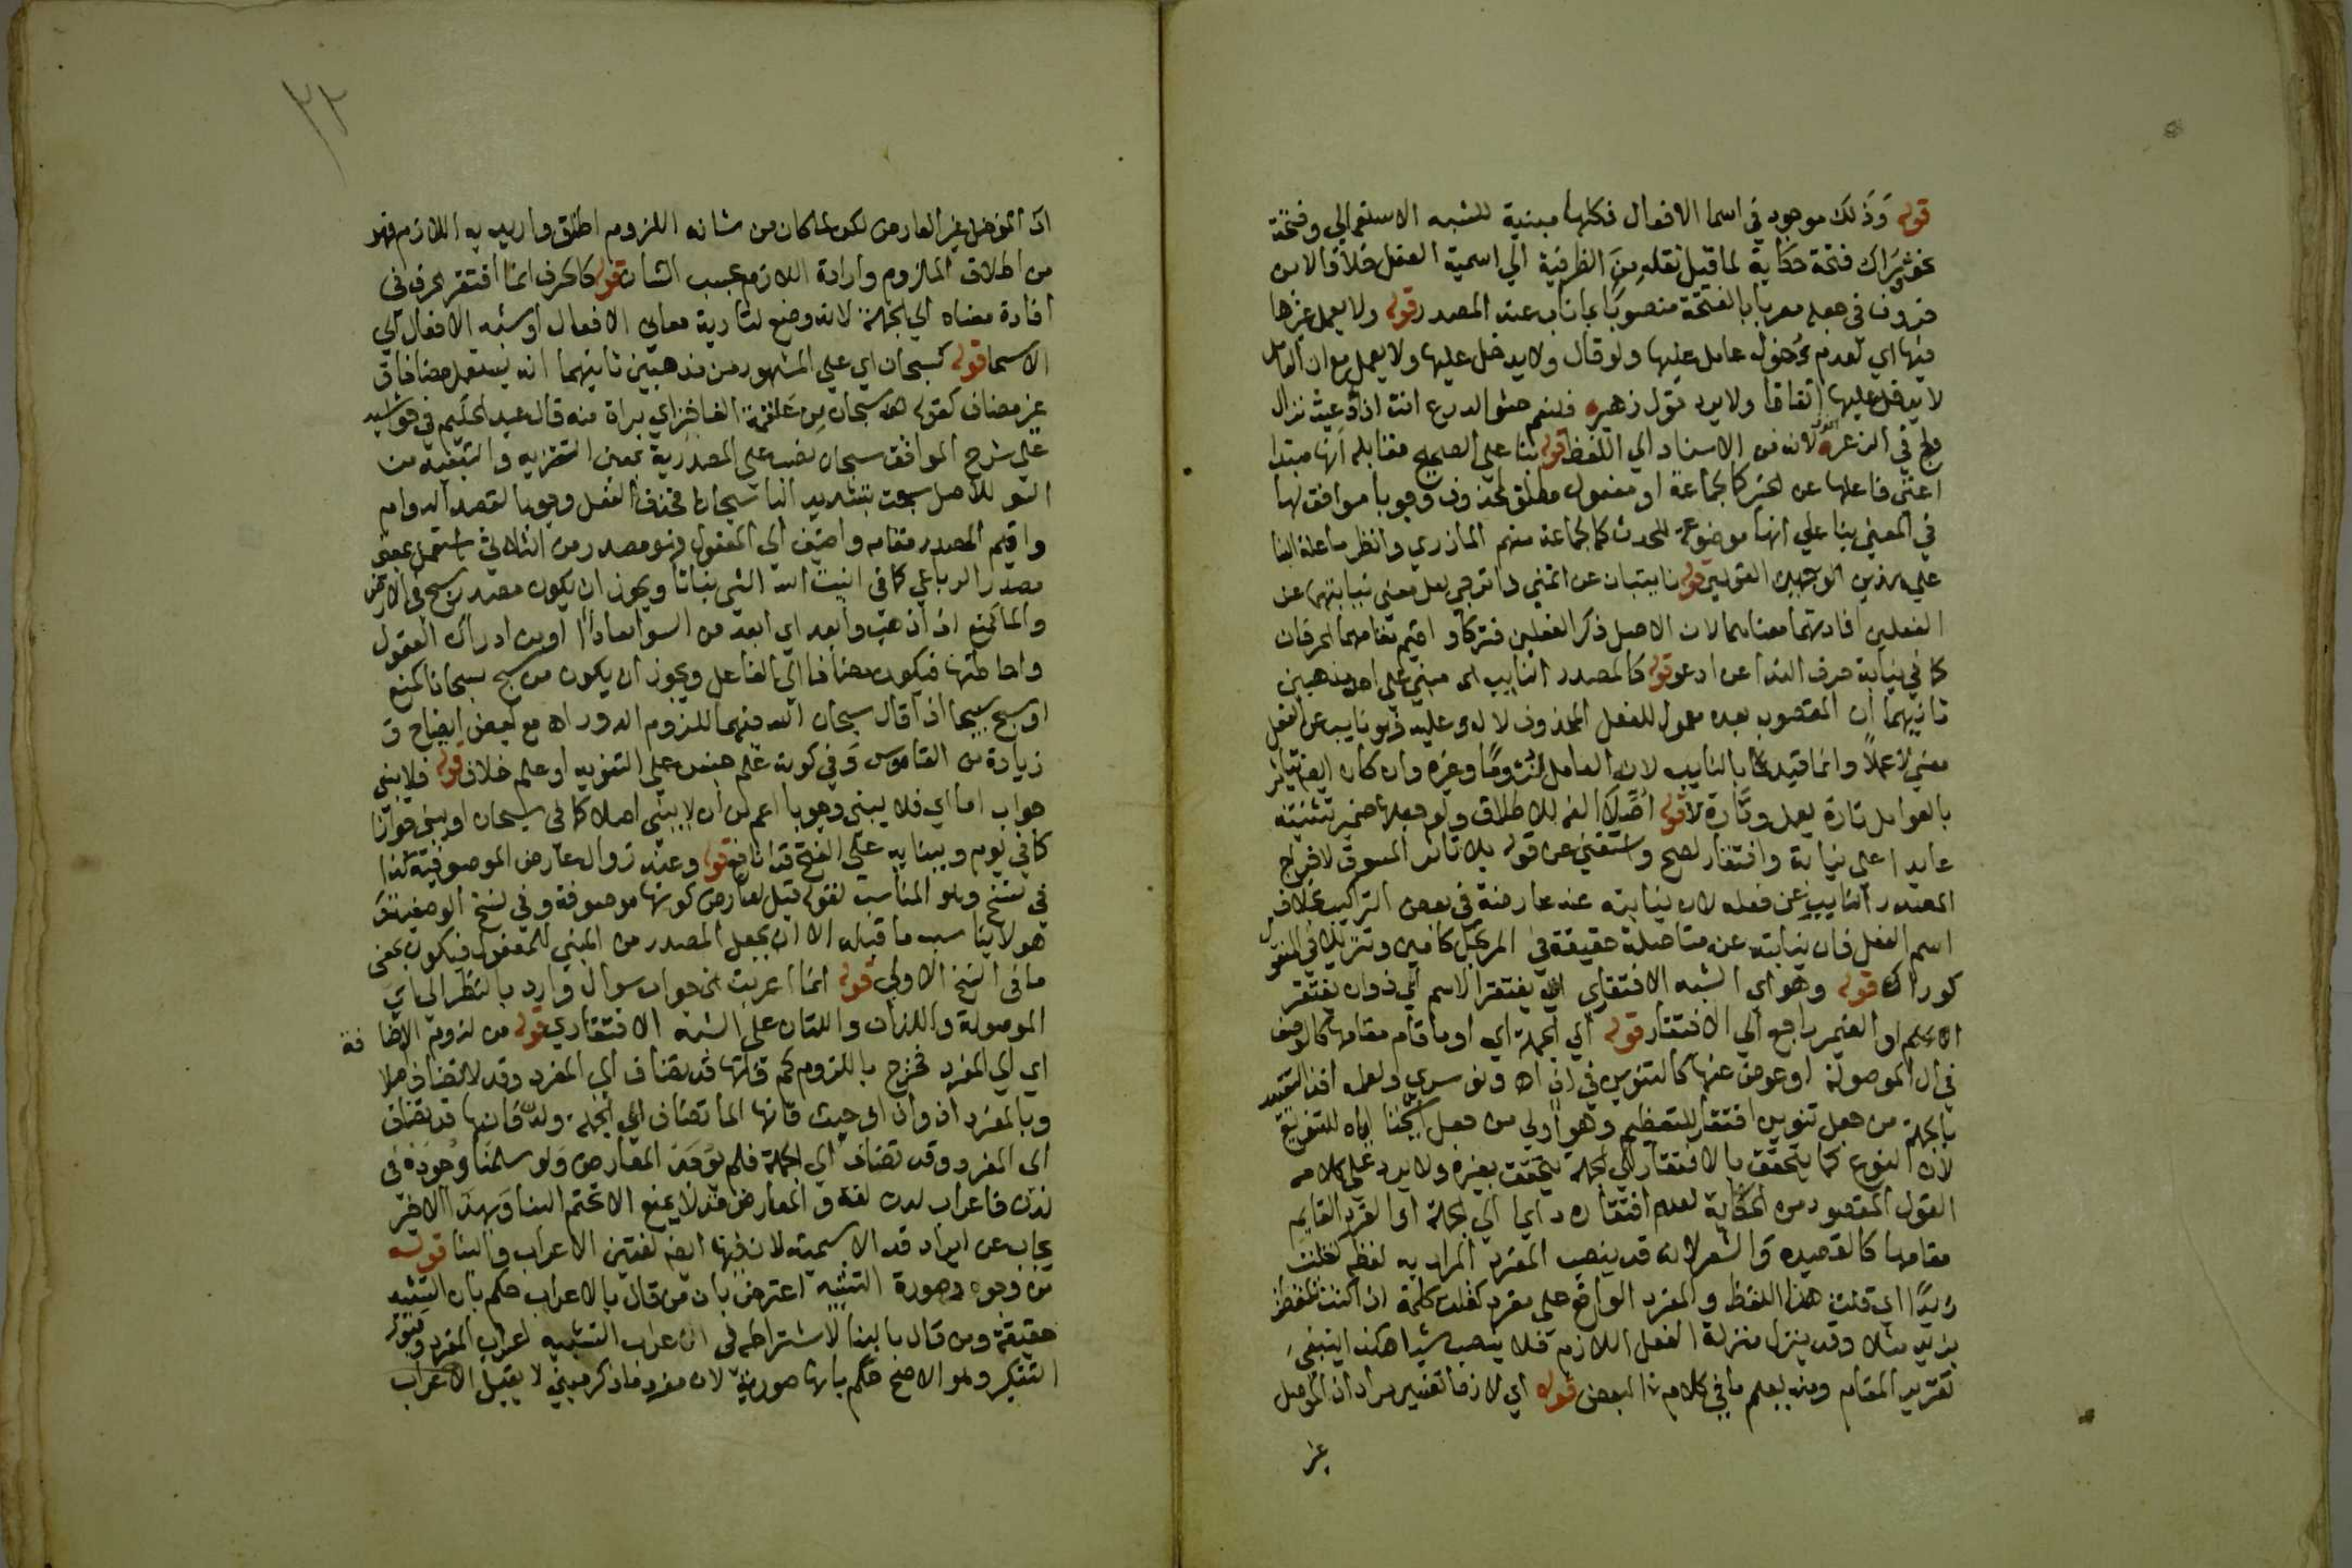 قوله وَذلك موجود في اسما الافعال فكلها مبنية للشبه الاستعمالي وفتحة
نحو وَرَاك فتحة حكاية لما قبل نقله مِنَ الظرفية الي اسمية الفعل خلافا لابن
خروف في جعله معربا بالفتحة منصوبًا بما ناب عنه المصدر قوله ولا يعمل غيرها
فيها اي لعدم دُخول عامل عليها ولو قال ولا يدخل عليها ولا يعمل مع ان العامل
لا يدخل عليها اتفاقا ولا يرد قول زهير فلنعم حشو الدرع انت اذا دُعيت نزال
ولج في الذعر لانه من الاسناد الي اللفظ قوله بنا علي الصحيح مقابله انها مبتدا
اغني فاعلها عن الخبر كالجماعة او مفعول مطلق لمحذوف وجوبا موافق لها
في المعني بنا علي انها موضوعة للحدث كما لجماعة منهم المازري وانظر ما علة البنا
علي هذين الوجهين القولين قوله نايبتان عن اتمني واترجي لعل معني نيابتهما عن
الفعلين افادتهما معناهما لان الاصل ذكر الفعلين فتركا واقيم مقامهما الحرفان
كما في نيابة حرف الندا عن ادعو قوله كالمصدر النايب اى مبني علي احد مذهبين
ثانيهما ان المنصوب بعده معمول للفعل المحذوف لا له وعليه فهو نايب عن الفعل
معني لا عملًا وانما قيد بالنايب لان العامل لزومًا وغيره وان كان ايضا يتاثر
بالعوامل تارة يعمل وتارة لا قوله اصّلا الفه للاطلاق ولو جعلها ضمير تثنية
عايد اعلى نيابة وافتقار لصح واستغني عن قوله بلا تاثر المسوق لاخراج
المصدر النايب عن فعله لان نيابته عنه عارضة في بعض التراكيب بخلاف
اسم الفعل فان نيابته عنه متاصلة حقيقة في المرتجل كامين وتنزيلا في المنقول
كوراك قوله وهو اى الشبه الافتقاري ان يفتقر الاسم اي ذوان يفتقر
الاسم او الضمير راجع الي الافتقار قوله الي الجملة اي او ما قام مقامها كالوصف
في ال الموصولة او عوض عنها كالتنوين في اذ اه ونوسري ولعله اخذ التقييد
بالجملة من جعل تنوين افتقار للتعظيم وهو اولي من جعل شيخنا اياه للتنويع
لان النوع كما يتحقق بالافتقار الي الجملة يتحقق بغيره ولا يرد علي كلامه
القول المقصود منه الحكاية لعدم افتقاره دايما الي الجملة او المفرد القايم
مقامها كالقصيدة والشعر لانه قد ينصب المفرد المراد به لفظه كقلت
زيدًا اي قلت هذا اللفظ والمفرد الواقع على مفرد كقلت كلمة اذا كنت تلفظت
بزيد مثلا وقد ينزل منزلة الفعل اللازم فلا ينصب شيا هكذا ينبغي
تقرير المقام ومنه يعلم ما في كلام البعض قوله اي لازما تفسير مراد اذ المؤصل
غير
٢٢
اذ المؤصل غير العارض لكن لما كان من شانه اللزوم اطلق واريد به اللازم فهو
من اطلاق الملزوم وارادة اللازم بحسب الشان قوله كالحرف انما افتقر الحرف في
افادة معناه الي الجملة لانه وضع لتادية معاني الافعال او شبه الافعال الي
الاسما قوله كسبحان اي علي المشهور من مذهبين ثانيهما انه يستعمل مضافا و
غير مضاف كقوله سبحان مِن عَلقمة الفاخر اي براة منه قال عبد الحكيم في حواشيه
على شرح المواقف سبحان نصب علي المصدرية بمعنى التنزيه والتبعيد من
السو للاصل سبحت بتشديد البا سبحانا فحذف الفعل وجوبا لقصد الدوام
واقيم المصدر مقامه واضيف الي المفعول فهو مصدر من الثلاثي استعمل بمعنى
مصدر الرباعي كما في انبت الله الشي نباتا ويجوز ان يكون مصدر سبح في الارض
والما كمنع اذا ذهب وابعد اي ابعد من السو ابعادًا او من ادراك العقول
واحاطتها فيكون مضافا الي الفاعل ويجوز ان يكون من سبح سبحانا كمنع
او سبح تسبيحا اذا قال سبحان الله فيهما للزوم الدور اه مع بعض ايضاح و
زيادة من القاموس وفي كونه عَلم جنس علي التنزيه او علم خلاف قوله فلا يبني
جواب اما اي فلا يبني وجوبا اعم من ان لا يبني اصلا كما في سبحان او يبني جوازا
كما في يوم وبينا به علي الفتح قرا نافع قوله وعند زوال عارض الموصوفية كذا
في نسخ وهو المناسب لقوله قبل لعارض كونها موصوفة وفي نسخ الوصفية
هو لا يناسب ما قبله الا ان يجعل المصدر من المبني للمفعول فيكون بمعنى
ما في النسخ الاولي قوله انما اعربت الخ جواب سوال وارد بالنظر الي اي
الموصولة واللذان واللتان علي الشبه الافتقاري قوله من لزوم الاضافة
اي الي المفرد فخرج باللزوم كم فانها قد تضاف الي المفرد وقد لا تضاف اصلا
وبالمفرد اذ واذا وحيث فانها انما تضاف الي الجملة ولدن فانها قد تضاف
الى المفرد وقد تضاف الي الجملة فلم يوجد المعارض وَلو سلمنا وُجوده في
لدن فاعراب لدن لغة والمعارض قد لا يمنع الا تحتم البنا وَبهَذا الاخير
يجاب عن ايراد قد الاسمية لان فيها ايضا لغتين الاعراب والبنا قوله
من وجوه وصورة التثنية اعترض بان من قال بالاعراب حكم بان التثنية
حقيقة ومن قال بالبنا لاشتراطه في الاعراب التثنية اعراب المفرد وقبول
التنكير وهو الاصح حكم بانها صورية لان مفرد ما ذكر مبني لا يقبل الاعراب